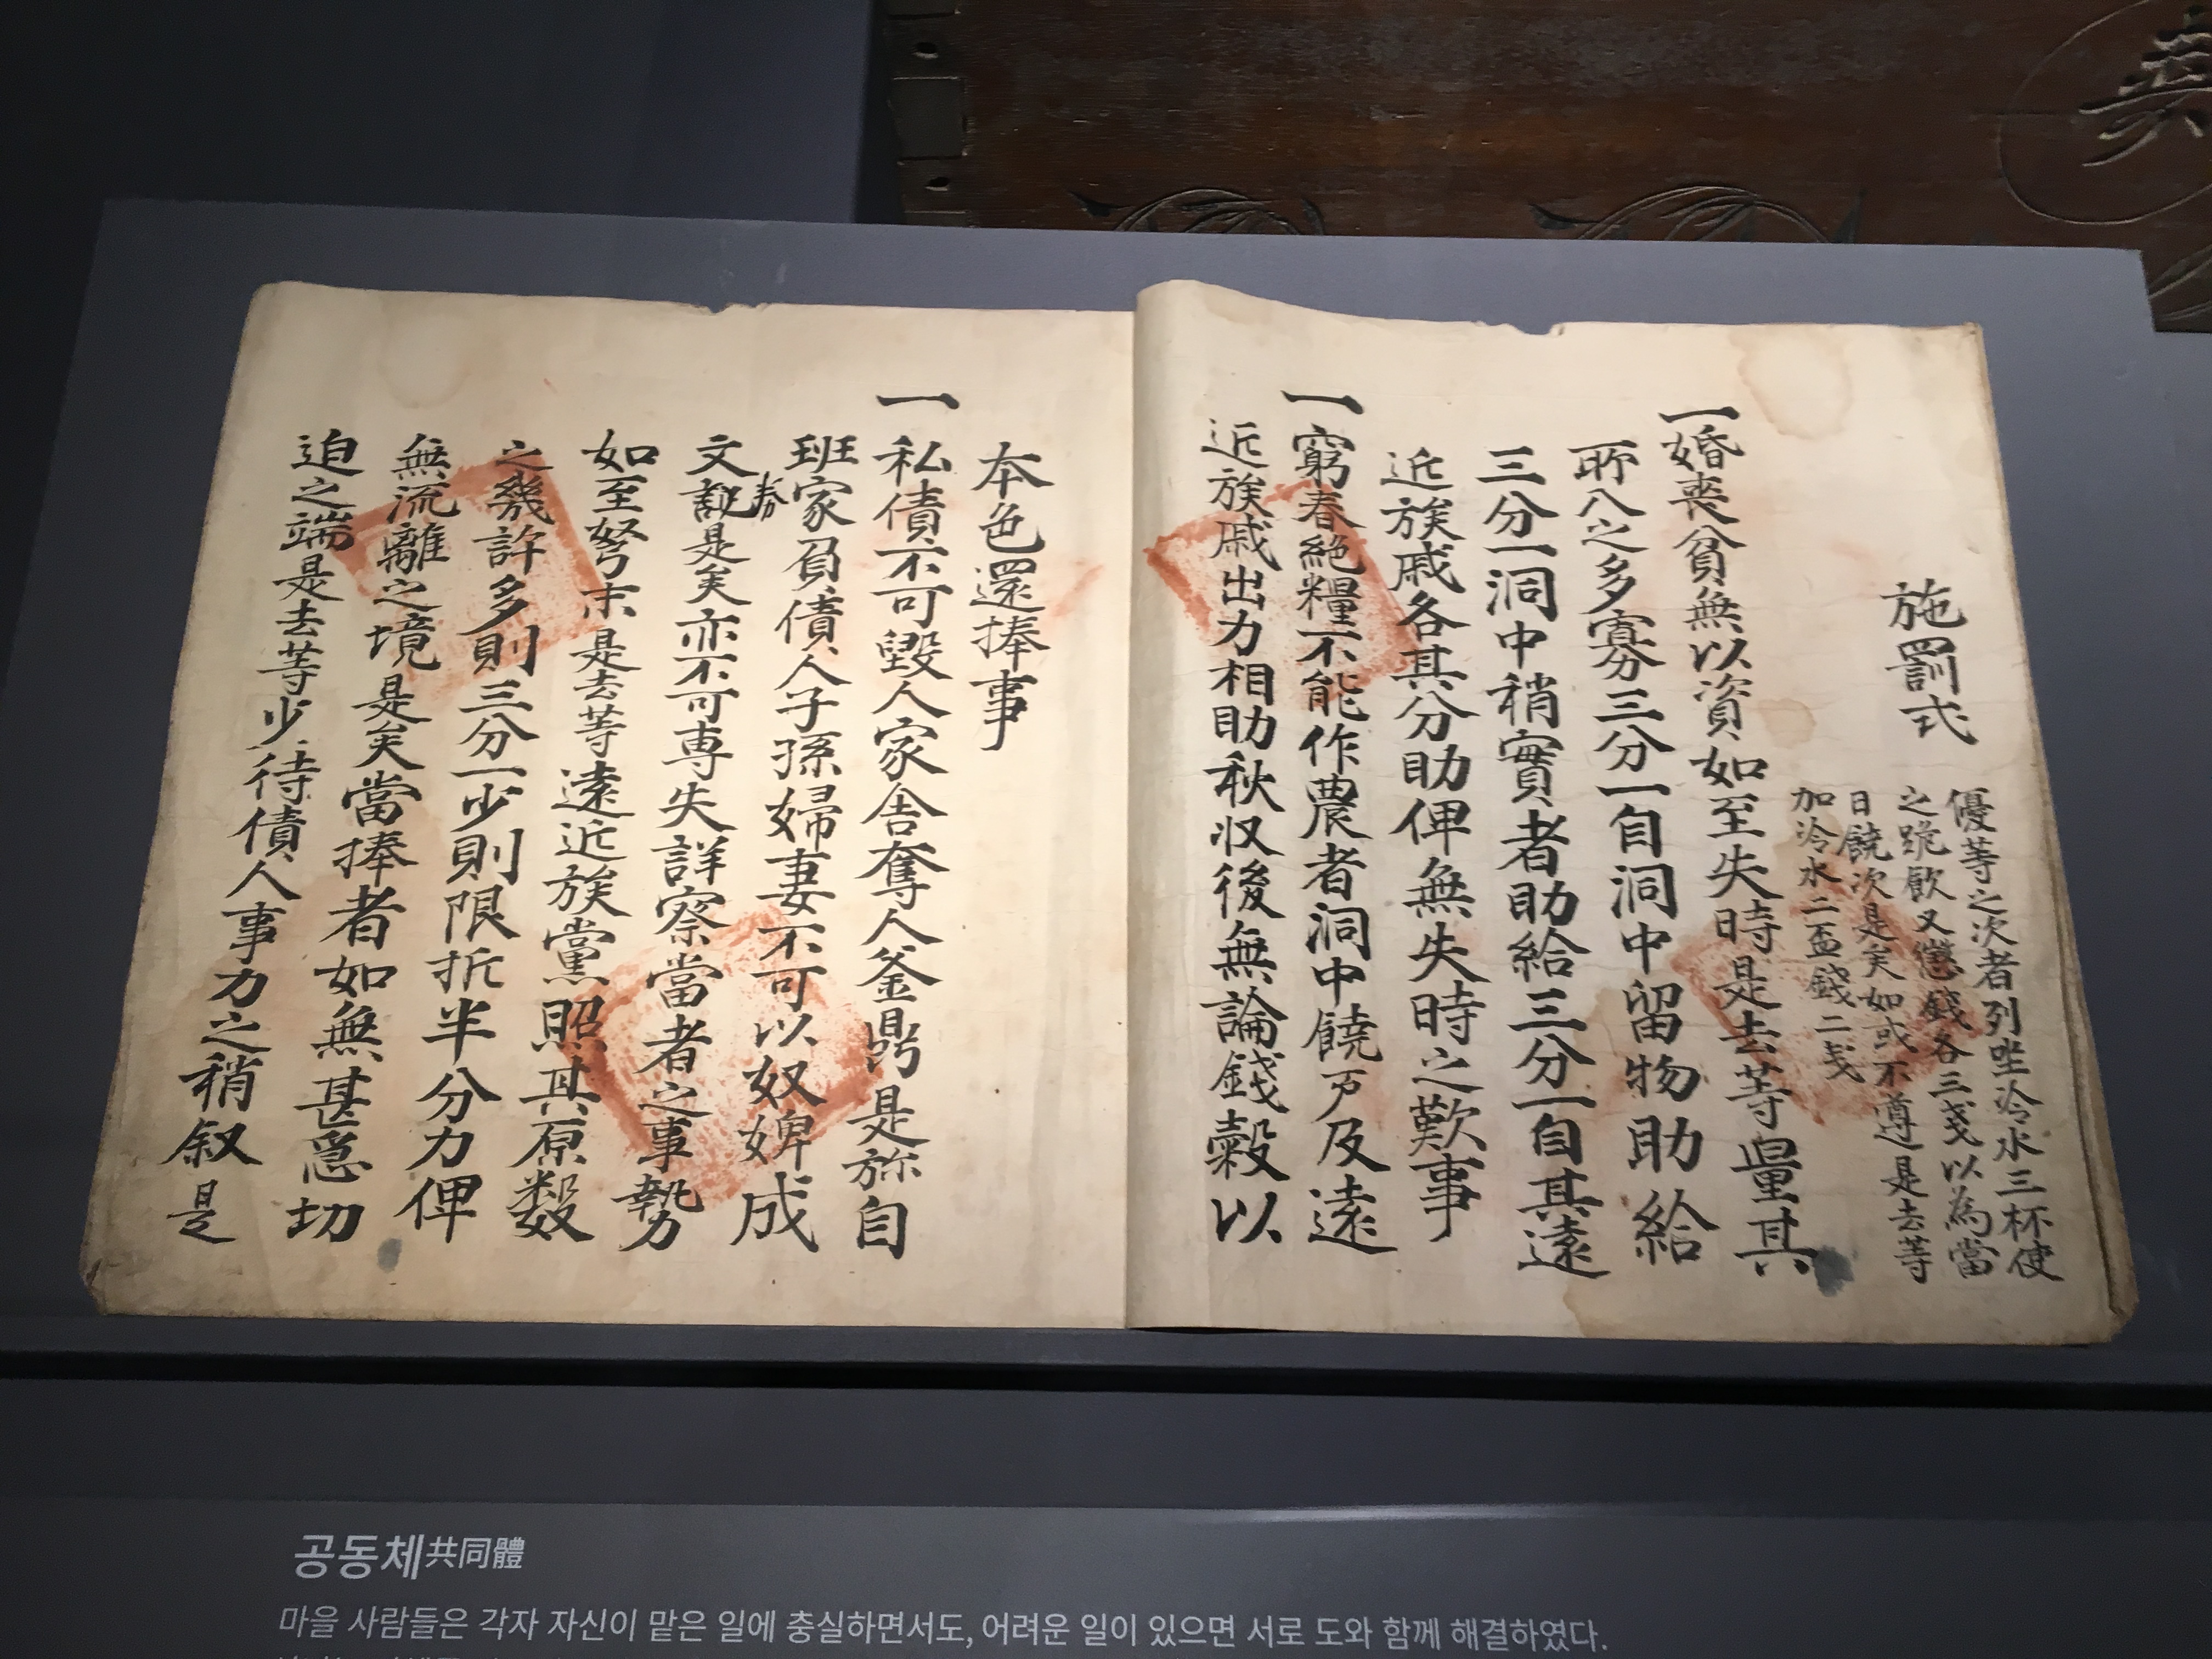 施罰式
優等之次者列唑冷水三杯使
之跪飮又懲錢各三戔以為當
日饒次是矣如或不遵是去等
加冷水二盃錢二戔
一婚喪貧無以資如至失時是去等量其
所入之多寡三分一自洞中留物助給
三分一洞中稍實者助給三分一自其遠
近族戚各其分助俾無失時之歎事
一窮春絶糧不能作農者洞中饒戶及遠
近族戚出力相助秋收後無論錢穀以
本色還捧事
一私債不可毁人家舍奪人釜鼎是旀自
班家負債人子孫婦妻不可以奴婢成
文券說是矣亦不可専失詳察當者之事勢
如至弩末是去等遠近族黨照其原数
之幾許多則三分一少則限折半分力俾
無流離之境是矣當捧者如無甚急切
迫之端是去等少待債人事力之稍叙是
공동체共同體
마을 사람들은 각자 자신이 맡은 일에 충실하면서도, 어려운 일이 있으면 서로 도와 함께 해결하였다.